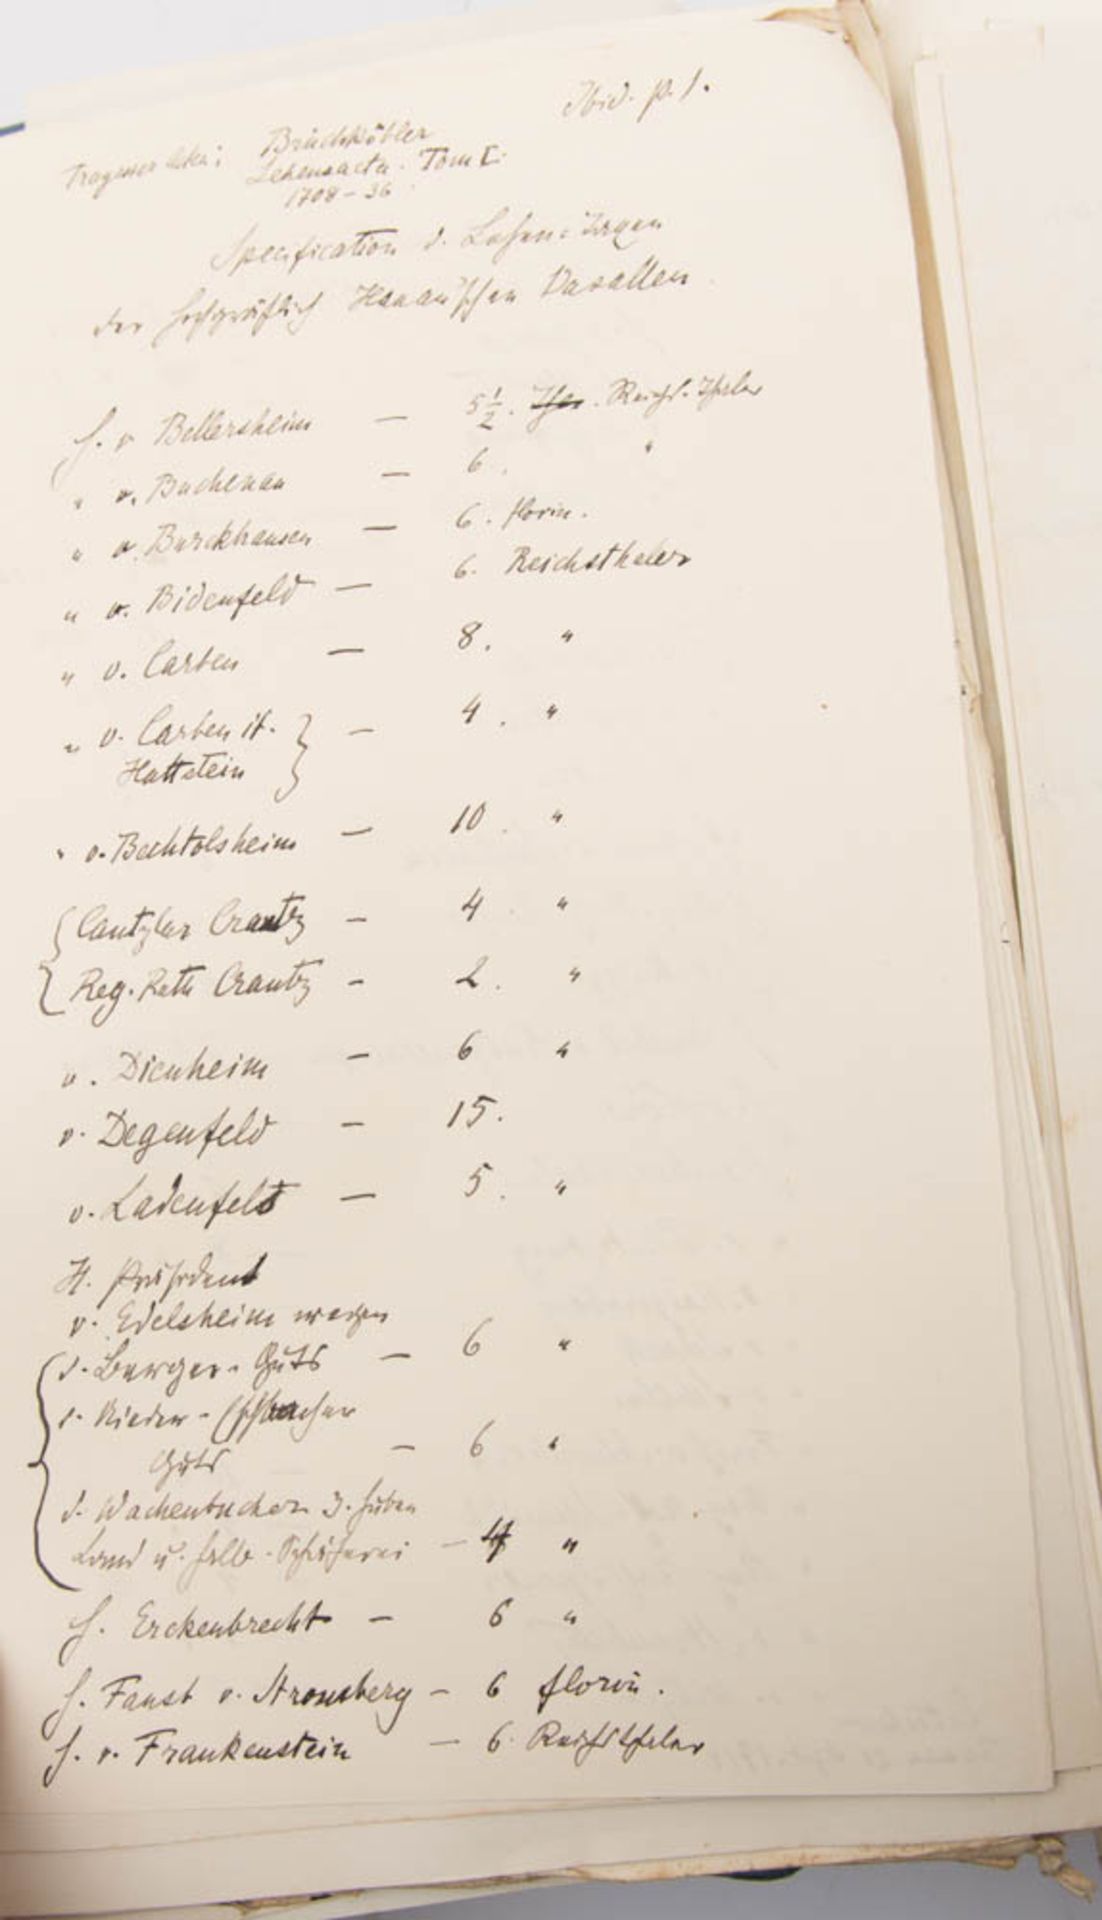 Ibid. p. 1.
Bruchköbler
Lehensacta. Tom I.
1708-36
Specification d. Lehen-
der hochgräflich Hanau'schen Vasallen
H. v Bellersheim — 5 1/2. Thlr. Reichs-Thaler
" v. Buchenau — 6. "
" v. Burckhausen — 6. florin.
" v. Bidenfeld — 6. Reichsthaler
" v. Carben — 8. "
" v. Carben it. — 4. "
Hattstein
" v. Bechtolsheim — 10. "
Cantzler Crantz — 4. "
Reg. Rath Crantz — 2. "
v. Dienheim — 6 "
v. Degenfeld — 15.
v. Ladenfeld — 5. "
H. Präsident
v. Edelsheim wegen
d. Burger-Guts — 6 "
d. Nieder-
Guts — 6 "
d. Wachenbucher 3. Huben
Land u. halb-Schäferei — 4 "
H. Erckenbrecht — 6 "
H. Faust v. Stromberg — 6 florin.
H. v. Frankenstein — 6. Reichsthaler